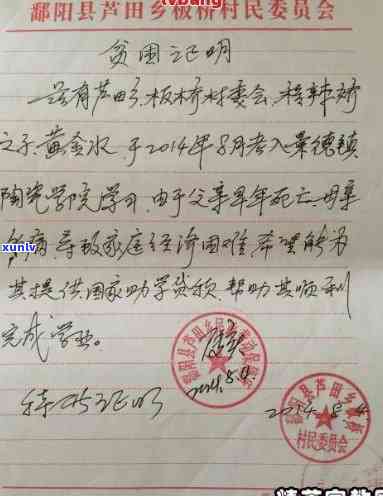 tvbang
鄱阳县芦田乡板桥村民委员会
贫困证明
兹有芦田乡板桥村委会
之子黄金水,于2014年8月考入景德镇
陶瓷学院学习,由于父亲早年死亡,母亲
病,导致家庭经济困难,希望能为
其提供国家助学贷款,帮助其顺利
完成学业。
情况属实
2014.8.4
特此证明
2014.8.4
鄱阳县芦田乡
鄱阳县芦田乡板桥
村民委员会
xunlv